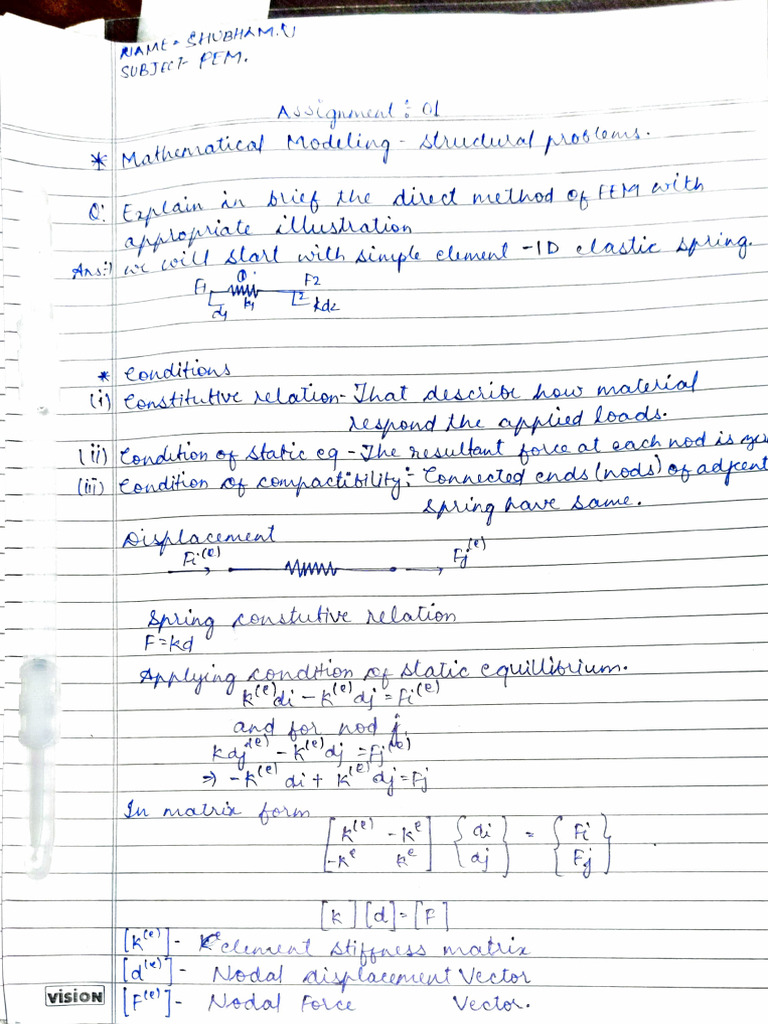 NAME = SHUBHAM.V
SUBJECT- FEM.
Assignment: 01
* Mathematical Modeling - structural problems.
Q: Explain in brief the direct method of FEM with
appropriate illustration
Ans:) we will start with simple element -1D elastic spring.
F1 ① F2
d1 k1 2 kd2
* Conditions
(i) Constitutive relation- That describe how material
respond the applied loads.
(ii) Condition of static eq - The resultant force at each nod is zero
(iii) Condition of compactibility:- Connected ends (nods) of adjcent
spring have same.
Displacement
Fi(e) Fj(e)
Spring constutive relation
F=kd
Applying condition of static equillibrium.
k(e)di - k(e)dj = fi(e)
and for nod j,
kdj(e) - k(e)dj = Fj(e)
⇒ -k(e) di + k(e)dj = Fj
In matrix form
[k(e) -ke] {di} = {Fi}
[-ke ke] {dj} {Fj}
[k][d]=[F]
[k(e)] - element stiffness matrix
[d(e)] - Nodal displacement Vector
vision [F(e)] - Nodal Force Vector.